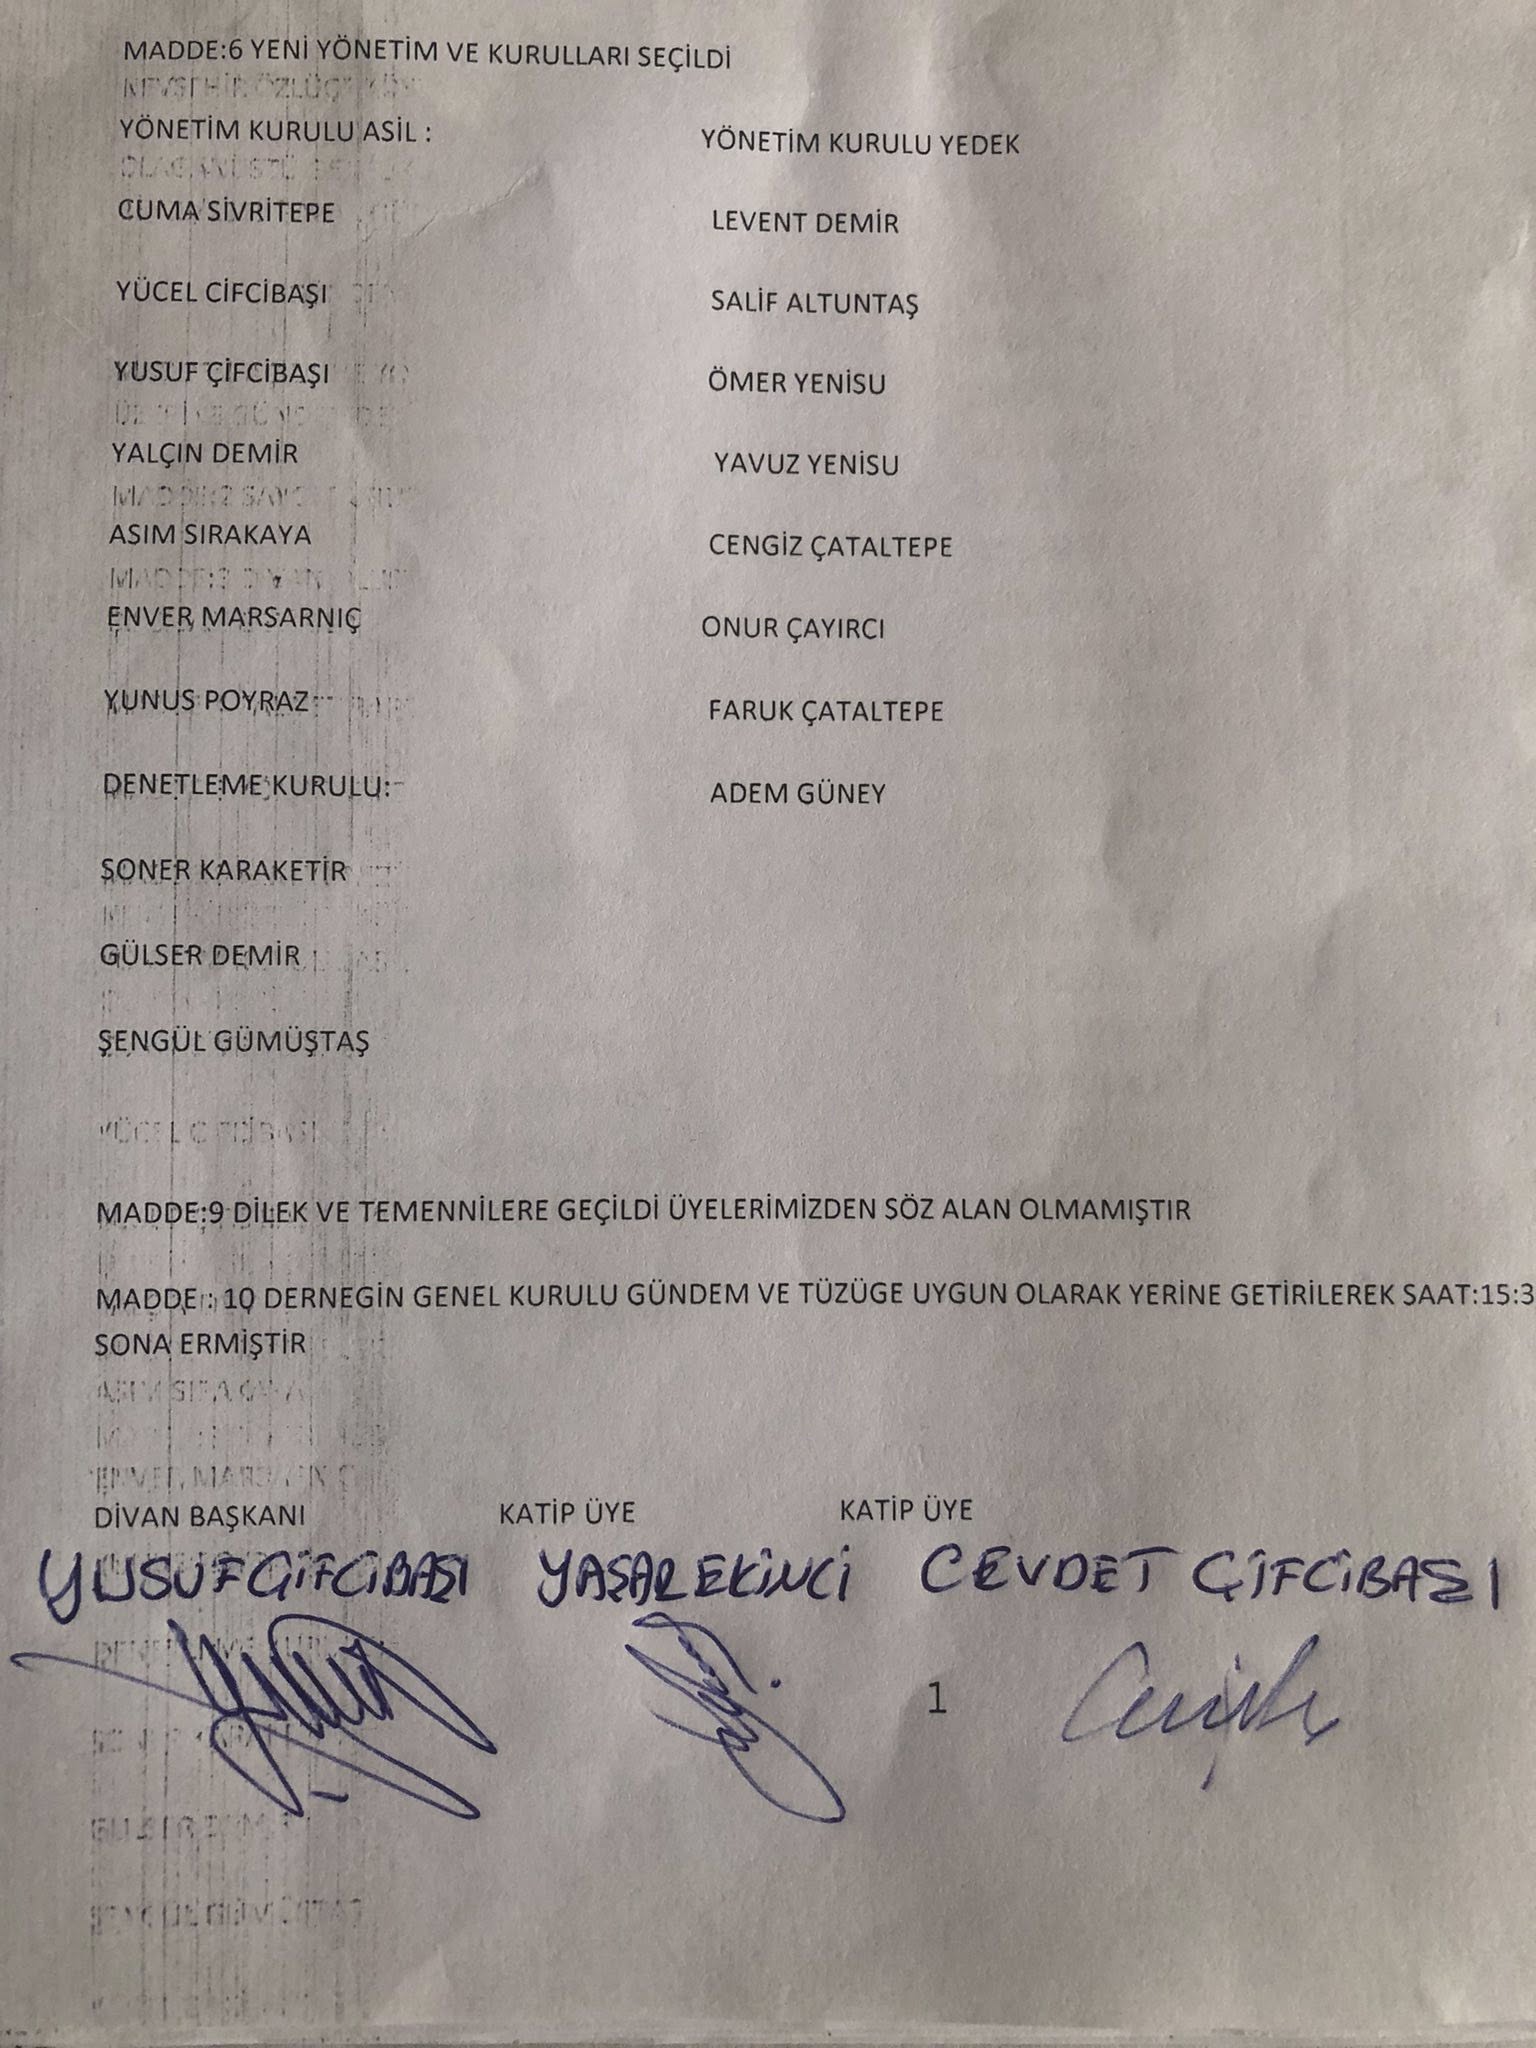 MADDE:6 YENİ YÖNETİM VE KURULLARI SEÇİLDİ
YÖNETİM KURULU ASİL : YÖNETİM KURULU YEDEK
CUMA SİVRİTEPE LEVENT DEMİR
YÜCEL CİFCİBAŞI SALİF ALTUNTAŞ
YUSUF ÇİFCİBAŞI ÖMER YENİSU
YALÇIN DEMİR YAVUZ YENİSU
ASIM SIRAKAYA CENGİZ ÇATALTEPE
ENVER MARSARNIÇ ONUR ÇAYIRCI
YUNUS POYRAZ FARUK ÇATALTEPE
DENETLEME KURULU: ADEM GÜNEY
SONER KARAKETİR
GÜLSER DEMİR
ŞENGÜL GÜMÜŞTAŞ
MADDE:9 DİLEK VE TEMENNİLERE GEÇİLDİ ÜYELERİMİZDEN SÖZ ALAN OLMAMIŞTIR
MADDE : 10 DERNEGİN GENEL KURULU GÜNDEM VE TÜZÜGE UYGUN OLARAK YERİNE GETİRİLEREK SAAT:15:3
SONA ERMİŞTİR
DİVAN BAŞKANI KATİP ÜYE KATİP ÜYE
YUSUF ÇİFCİBAŞI YAŞAR EKİNCİ CEVDET ÇİFCİBAŞI
1